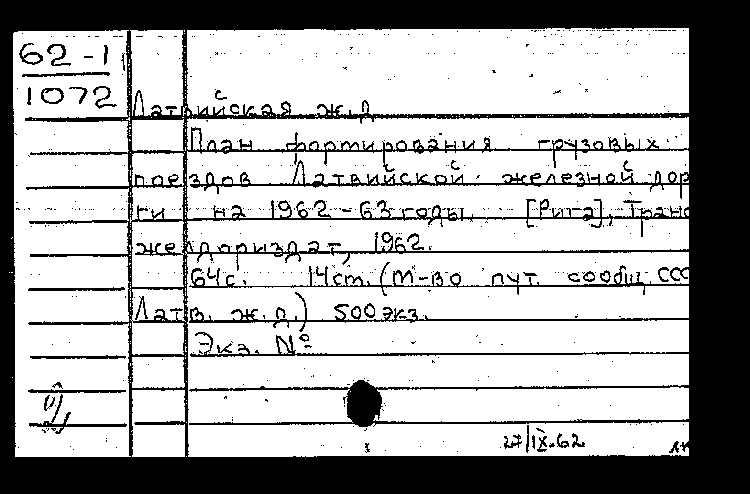 62-1
1072
Латвийская ж.д
План формирования грузовых
поездов Латвийской железной дор
ги на 1962-63 годы. [Рига], Транс
желдориздат, 1962.
64с. 14ст. (М-во пут. сообщ ССС
Латв. ж.д.) 500 экз.
Экз. №
27/IX-62